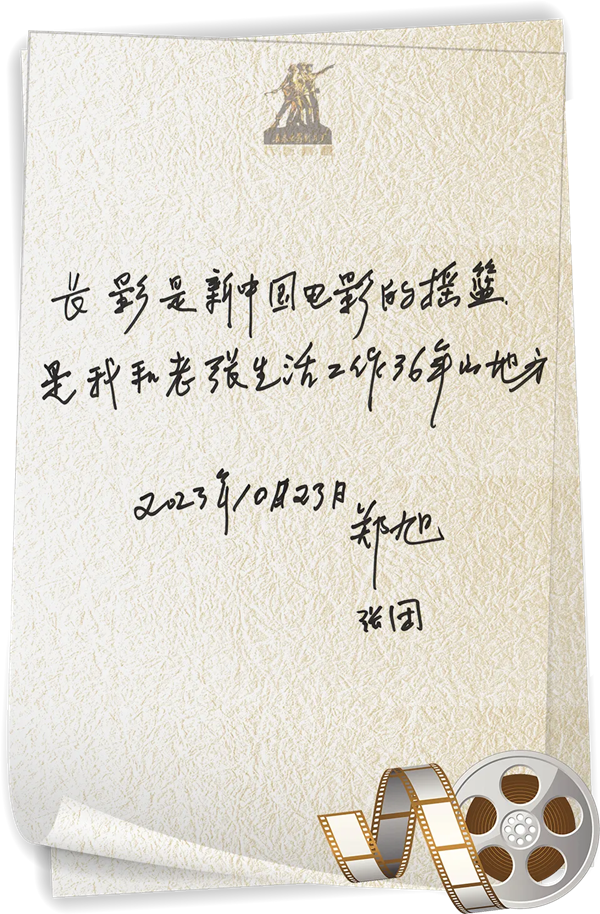 长影是新中国电影的摇篮.
是我和老张生活工作36年的地方
2023年10月23日
郑旭
张团